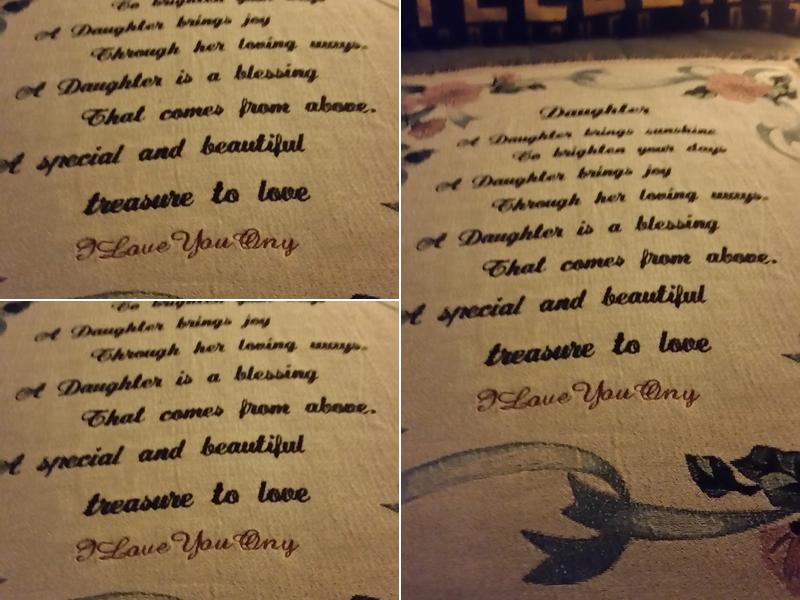 To brighten your days
A Daughter brings joy
Through her loving ways.
A Daughter is a blessing
That comes from above.
A special and beautiful
treasure to love
I Love You Ony
Daughter
A Daughter brings sunshine
To brighten your days
A Daughter brings joy
Through her loving ways.
A Daughter is a blessing
That comes from above.
A special and beautiful
treasure to love
I Love You Ony
A Daughter brings joy
Through her loving ways.
A Daughter is a blessing
That comes from above.
A special and beautiful
treasure to love
I Love You Ony